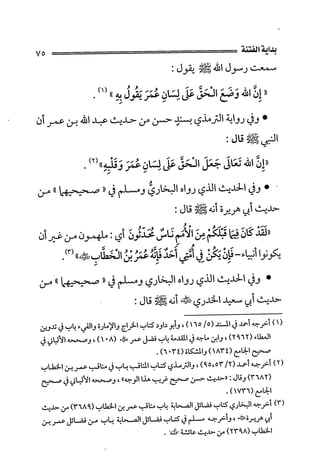 بداية الفتنة ٧٥
سمعت رسول الله ﷺ يقول :
«إِنَّ الله وَضَعَ الْحَقَّ عَلَى لِسَانِ عُمَرَ يَقُولُ بِهِ»(١) .
• وفي رواية الترمذي بسندٍ حسن من حديث عبد الله بن عمر أن
النبي ﷺ قال :
«إِنَّ الله تَعَالَى جَعَلَ الْحَقَّ عَلَى لِسَانِ عُمَرَ وَقَلْبِهِ»(٢) .
• وفي الحديث الذي رواه البخاريُّ ومسلم في «صحيحيهما» من
حديث أبي هريرة أنه ﷺ قال :
«لَقَدْ كَانَ فِيمَا قَبْلَكُمْ مِنَ الْأُمَمِ نَاسٌ مُحَدَّثُونَ أي : ملهمون من غير أن
يكونوا أنبياء - فَإِنْ يَكُنْ فِي أُمَّتِي أَحَدٌ فَإِنَّهُ عُمَرُ بْنُ الْخَطَّابِ»(٣) .
• وفي الحديث الذي رواه البخاري ومسلم في «صحيحيهما» من
حديث أبي سعيد الخدري أنه ﷺ قال :
(١) أخرجه أحمد في المسند (٥/ ١٦٥) ، وأبو داود كتاب الخراج والإمارة والفيء باب في تدوين
العطاء (٢٩٦٢) ، وابن ماجه في المقدمة باب فضل عمر (١٠٨) ، وصححه الألباني في
صحيح الجامع (١٨٣٤) والمشكاة (٦٠٣٤) .
(٢) أخرجه أحمد (٢/ ٥٣، ٩٥) ، والترمذي كتاب المناقب باب في مناقب عمر بن الخطاب
(٣٦٨٢) وقال : «حديث حسن صحيح غريب هذا الوجه» ، وصححه الألباني في صحيح
الجامع (١٧٣٦) .
(٣) أخرجه البخاري كتاب فضائل الصحابة باب مناقب عمر بن الخطاب (٣٦٨٩) من حديث
أبي هريرة ، وأخرجه مسلم في كتاب فضائل الصحابة باب من فضائل عمر بن
الخطاب (٢٣٩٨) من حديث عائشة .